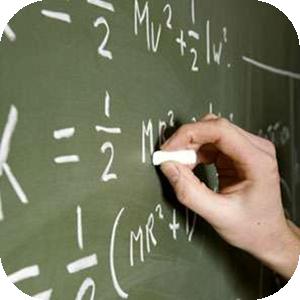 = 1/2 Mv² + 1/2 Iw².
K = 1/2 M
= 1/2 (MR² + I